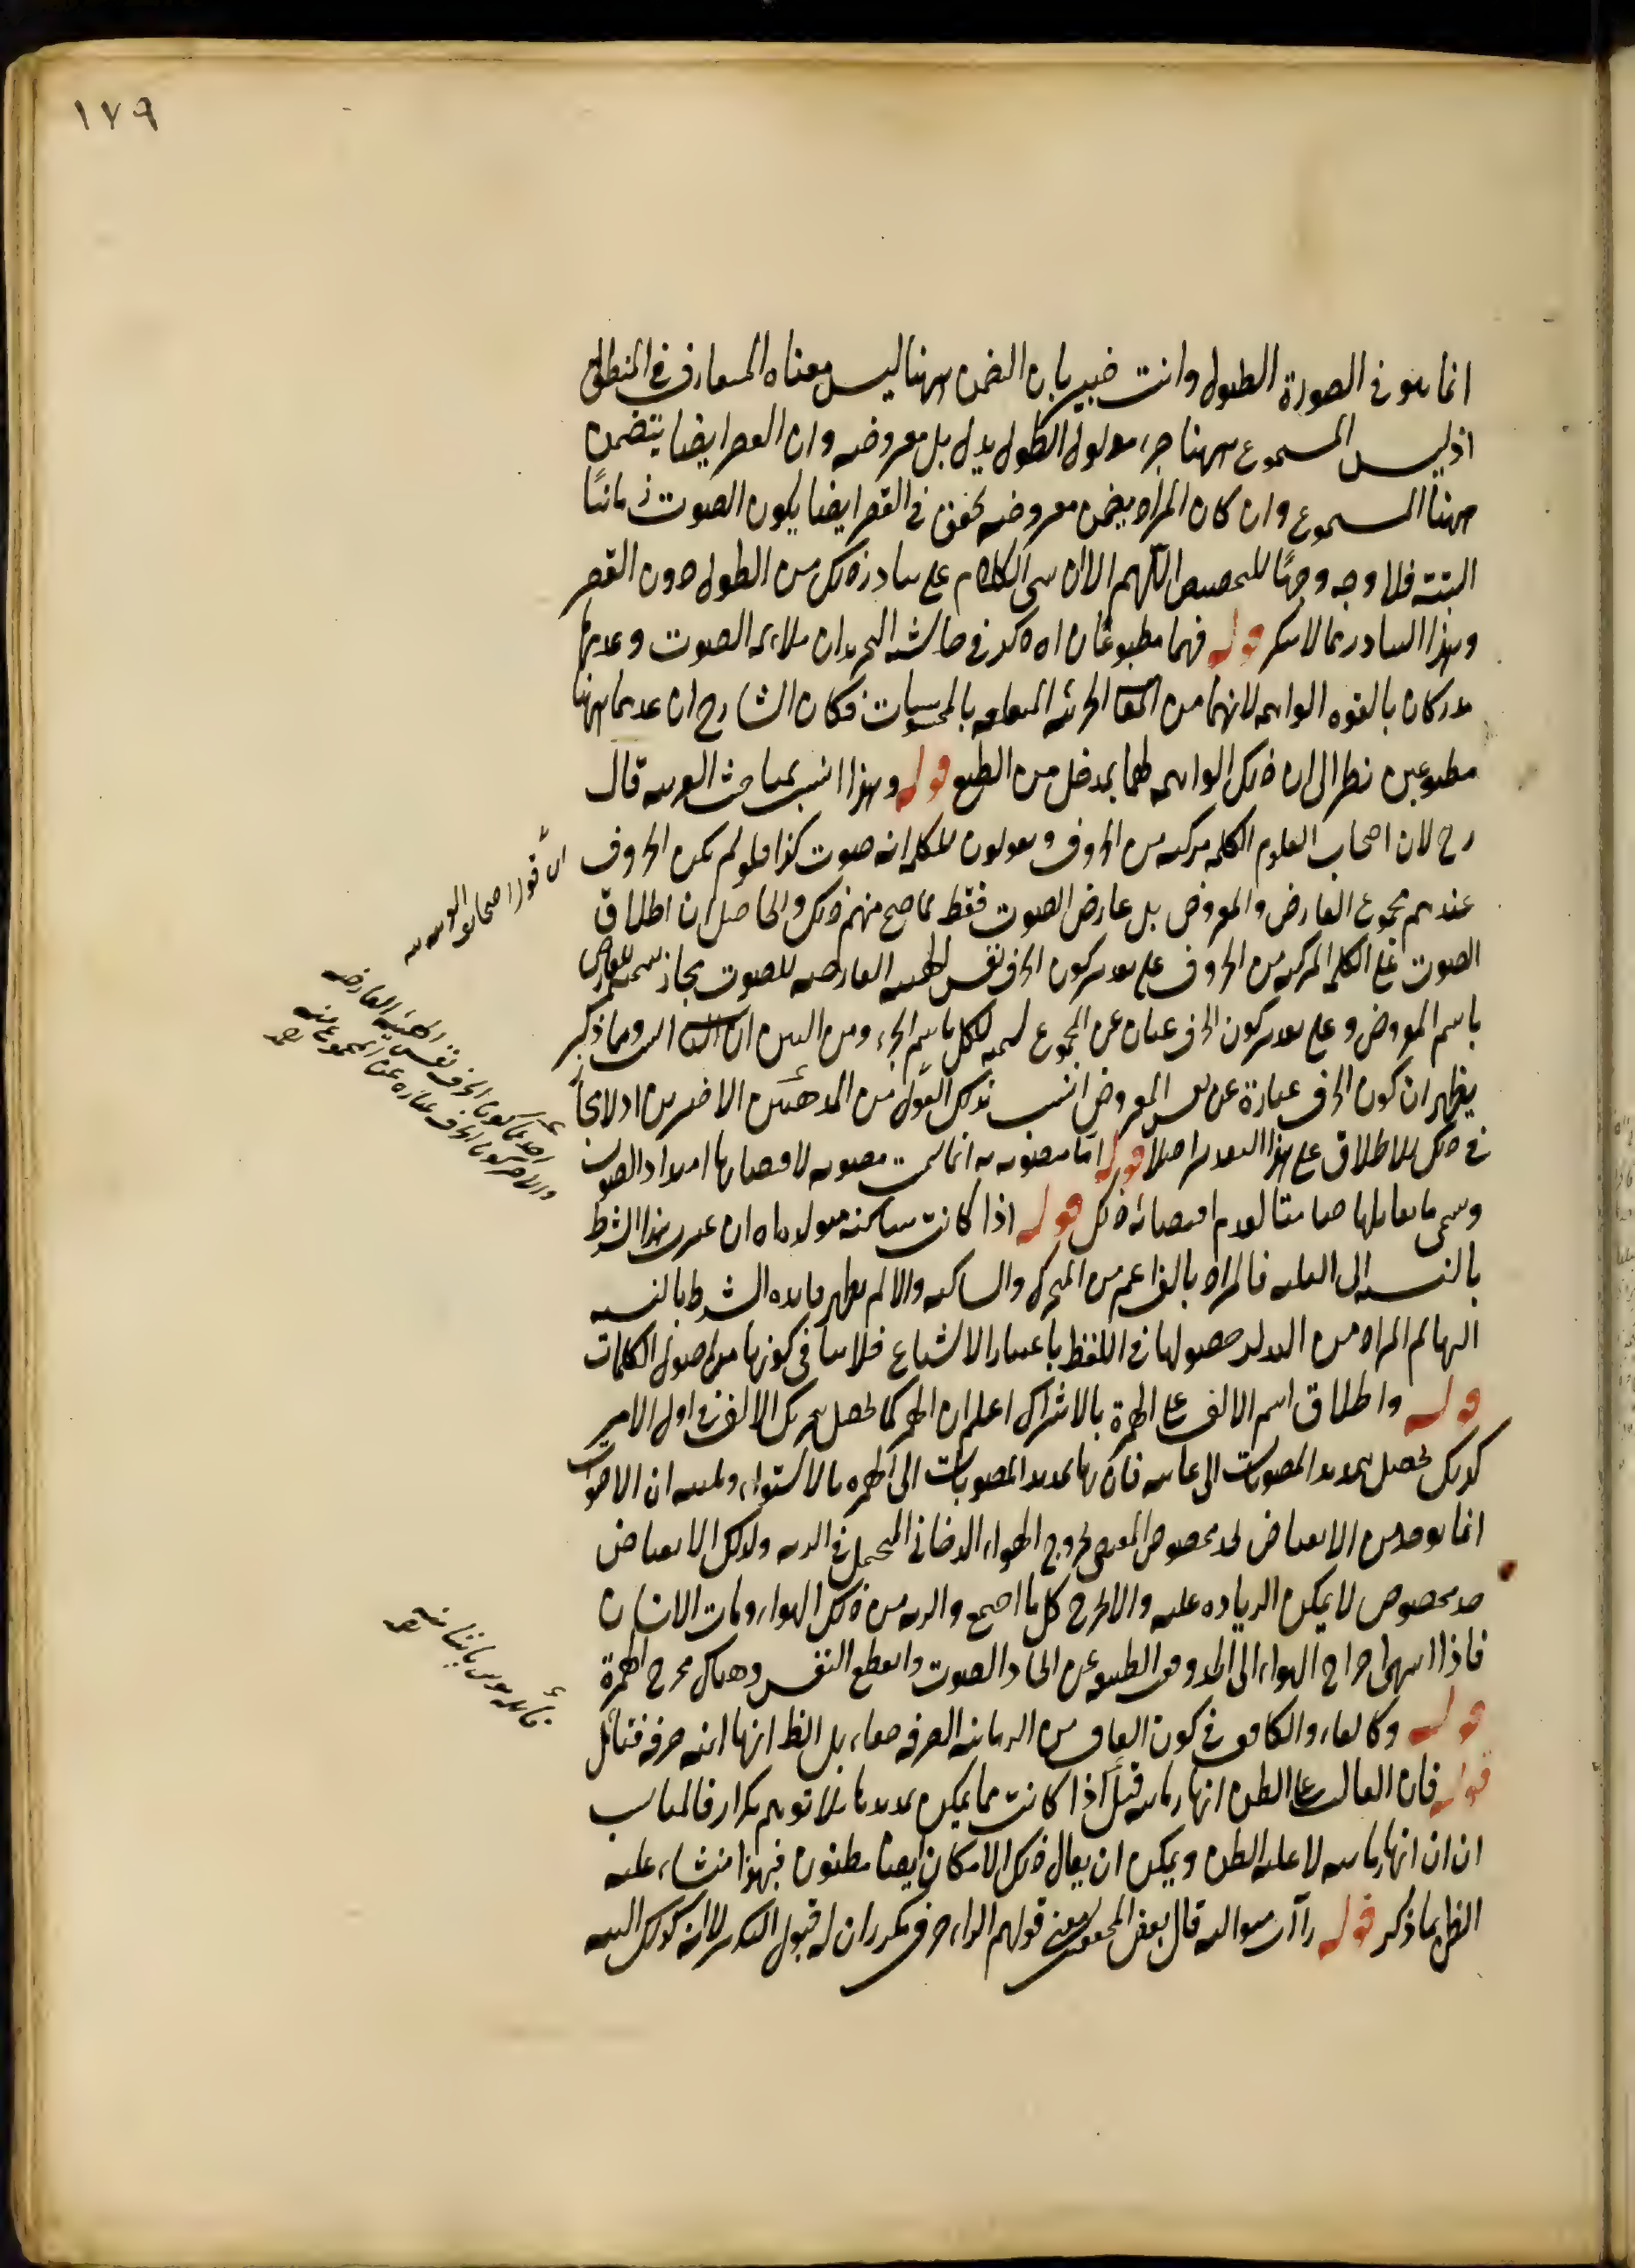 ١٧٩
انما هو في الصورة الطول وانت خبير بان التضمن ههنا ليس معناه المتعارف في المنطق
اذ ليس المسموع ههنا جزء مدلول الطول بل معروضه وان القصر ايضا يتضمن
ههنا المسموع وان كان المراد بتضمن معروضه تحقق في القصر ايضا يكون الصوت زمانيا
البتة فلا وجه وجها للتخصيص اللهم الا ان بنى الكلام على تبادر ذلك من الطول دون القصر
وهذا التبادر مما لا ينكر قوله فهما مطبوعان اه ذكر في حاشية التجريد ان ملايمة الصوت وعدمها
مدركان بالقوة الواهمة لانهما من المعاني الجزئية المتعلقة بالمحسوسات فكان الشارح ان عدهما ههنا
مطبوعين نظرا الى ان ذلك الواهمة لهما بمدخل من الطبع قوله وهذا انسب بمباحث العربية قال
رح لان اصحاب العلوم الكلمة مركبة من الحروف ويقولون للكلام انه صوت كذا فلو لم يكن الحروف
عندهم مجموع العارض والمعروض بل عارض الصوت فقط لما صح منهم ذلك والحاصل ان اطلاق
الصوت على الكلمة المركبة من الحروف على تقدير كون الحرف نفس الهيئة العارضة للصوت مجاز تسمية للعارض
باسم المعروض وعلى تقدير كون الحرف عبارة عن المجموع تسمية للكل باسم الجزء ومن البين ان ومما ذكر
يظهر ان كون الحرف عبارة عن نفس المعروض انسب بذلك القول من المذهبين الاخيرين اذ لا مجاز
في ذلك الاطلاق على هذا التقدير اصلا قوله اما مصوتة انما سميت مصوتة لاقتضائها امتداد الصوت
وسمى ما يقابلها صامتا لعدم اقتضائه ذلك قوله اذا كانت ساكنة متولدة اه ان اعتبر هذا الشرط
بالنسبة الى العلة فالمراد بالف اعم من المتحركة والساكنة والا لم يظهر فائدة الشرط بالنسبة
اليها ثم المراد من التولد حصولها في اللفظ باعتبار الاشباع فلا ينافي كونها من اصول الكلمات
قوله واطلاق اسم الالف على الهمزة بالاشتراك اعلم ان الهمزة كما تحصل بتحريك الالف في اول الامر
كذلك تحصل بتمديد المصوتات الى غايته فان نهاية تمديد المصوتات الى الهمزة بالاستواء ولميته ان الاصوات
انما توجد من الانقباض لحد مخصوص المقتضي لخروج الهواء الدخاني المتحمل في الرية ولذلك الانقباض
حد مخصوص لا يمكن الزيادة عليه والا لخرج كل ما اجتمع والرية من ذلك الهواء ومات الانسان
فاذا انتهى اخراج الهواء الى الحد وقف الطبيعة عن ايجاد الصوت وانقطع النفس وهناك مخرج الهمزة
قوله وكالفاء والقاف في كون القاف من الزمانية الصرفة خفاء، بل الظ انها آنية صرفة فتأمل
قوله فان الغالب على الظن انها زمانية قيل اذا كانت مما يمكن تمديدها بلا توهم تكرار فالمناسب
ان انها زمانية لا غلبة الظن ويمكن ان يقال ذلك الامكان ايضا مظنون فهذا منشاء غلبة
الظن بما ذكر قوله راآت متوالية قال بعض المحققين معنى قولهم الراء حرف مكرر ان له قبول التكرار لا انه كذلك البتة
اي قول اصحاب العربية
احدهما كون الحرف نفس الهيئة العارضة
والاخر كون الحرف عبارة عن المجموع منه
قائله مير پادشاه منه